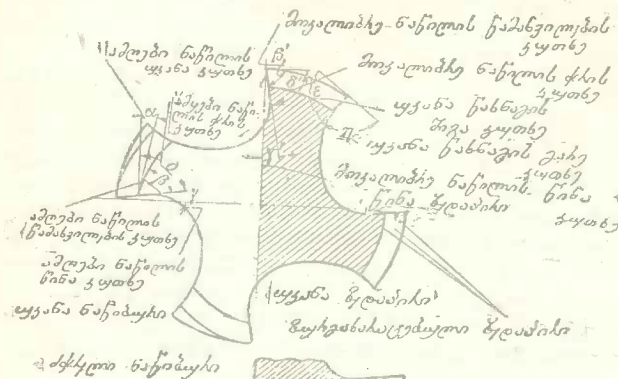 მოკალიბრე ნაწილის წამახვილების
კუთხე
მოკალიბრე ნაწილის ჭრის
კუთხე
უკანა წახნაგის
შიგა კუთხე
უკანა წახნაგის გარე
კუთხე
მოკალიბრე ნაწილის წინა
კუთხე
წინა ზედაპირი
ამღები ნაწილის
უკანა კუთხე
ამღები ნაწი-
ლის ჭრის
კუთხე
ამღები ნაწილის
წამახვილების კუთხე
ამღები ნაწილის
წინა კუთხე
უკანა ნაწიბური
უკანა ზედაპირი
ზურგ ზედაპირი
ნაწიბური